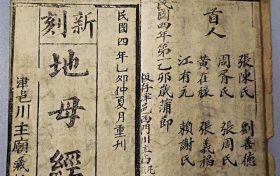 首人
劉善德 張周氏 張義福 賴謝氏
張陳氏 周胥氏 黃在級 江有元
民國四年第一乙卯歲蒲節
民國四年乙卯仲夏月重刊
新刻
地母經
津邑川主廟藏